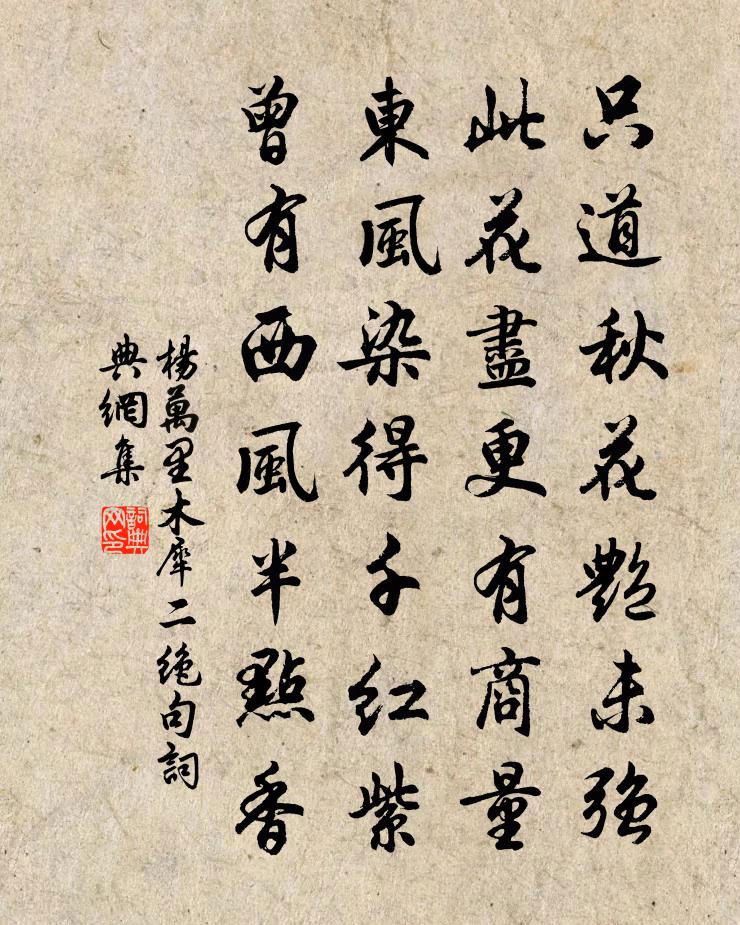 只道秋花艷未強
此花盡更有商量
東風染得千紅紫
曾有西風半點香
楊萬里木犀二絕句詞
典網集
詞典網印